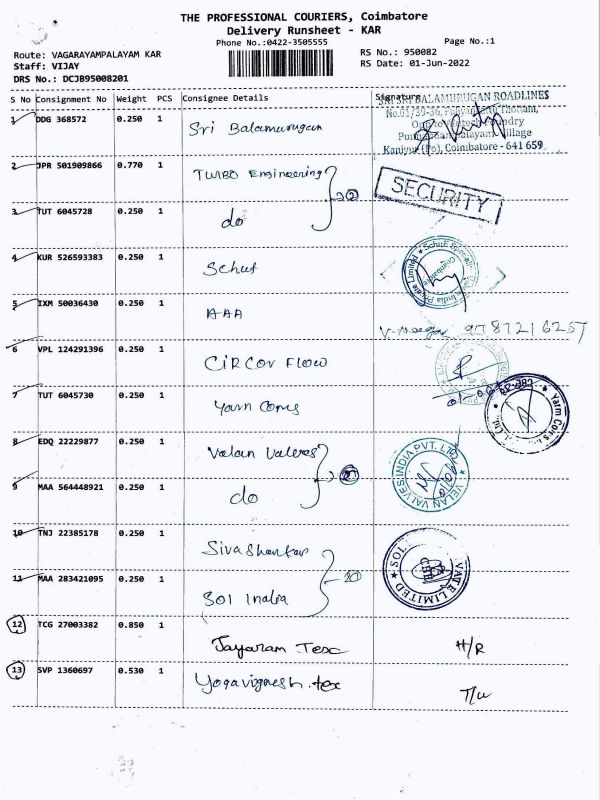 THE PROFESSIONAL COURIERS, Coimbatore
Delivery Runsheet - KAR
Phone No.:0422-3505555
Page No.:1
Route: VAGARAYAMPALAYAM KAR
RS No.: 950082
Staff: VIJAY
RS Date: 01-Jun-2022
DRS No.: DCJB95008201
S No Consignment No Weight PCS Consignee Details Signature
SRI SRI BALAMURUGAN ROADLINES
1 DDG 368572 0.250 1 Sri Balamurugan
Kaniyur (Po), Coimbatore - 641 659
2 JPR 501909866 0.770 1 TURBO Engineering
SECURITY
3 TUT 6045728 0.250 1 do
4 KUR 526593383 0.250 1 Schut
5 IXM 50036430 0.250 1 AAA
6 VPL 124291396 0.250 1 CIRCOR FLOW
7 TUT 6045730 0.250 1 Yarn Corns
8 EDQ 22229877 0.250 1 Velan Valves
VELAN VALVES INDIA PVT. LTD
9 MAA 564448921 0.250 1 do
10 TNJ 22385178 0.250 1 Sivashankar
11 MAA 283421095 0.250 1 SOI India
12 TCG 27003382 0.850 1 Jayaram Tex H/R
13 SVP 1360697 0.530 1 Yogavignesh.tex